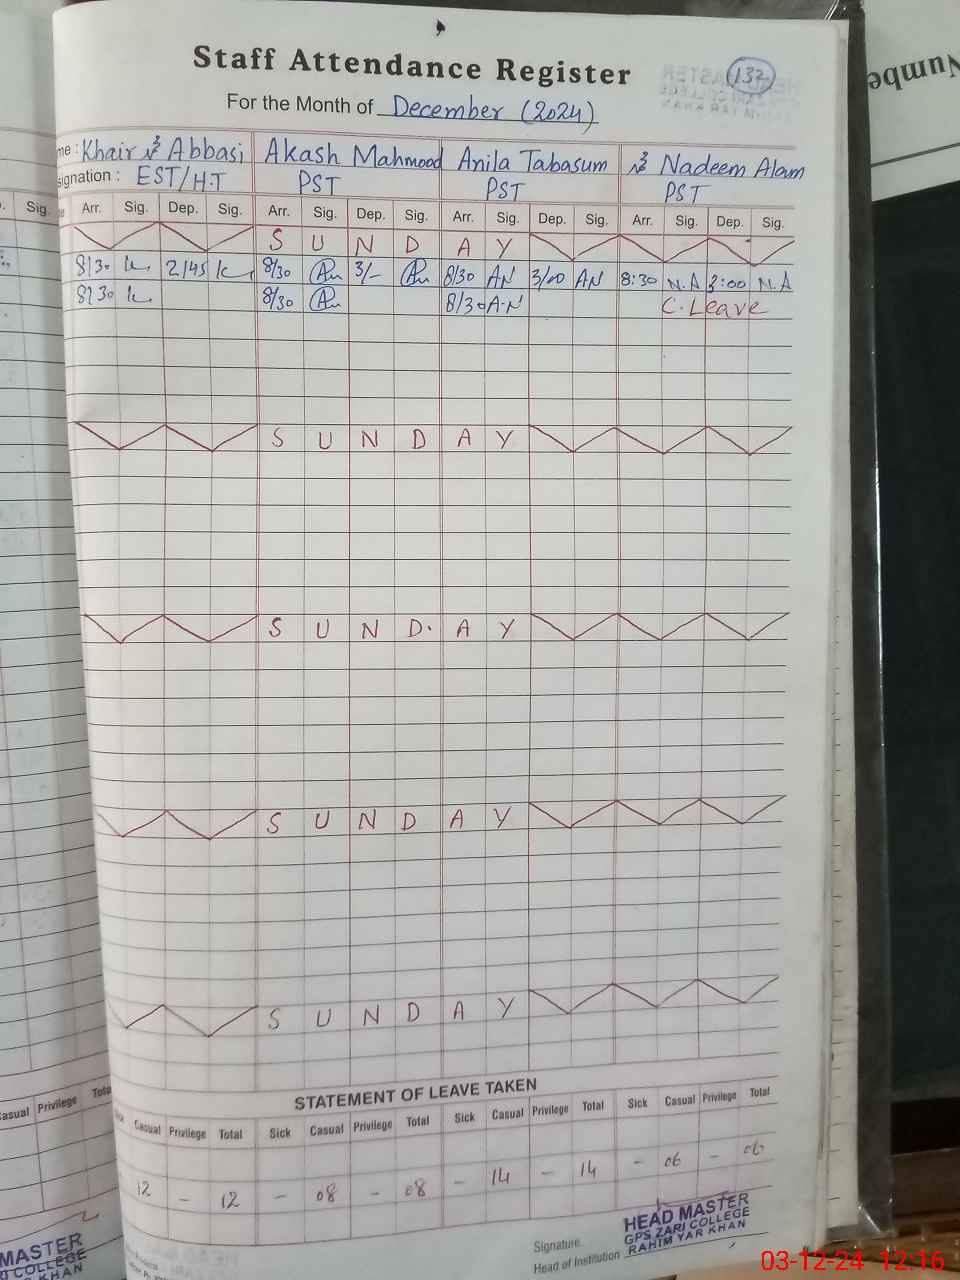 Staff Attendance Register
132
For the Month of December (2024)
me : Khair Abbasi Akash Mahmood Anila Tabasum Nadeem Alam
signation : EST/H.T PST PST PST
Sig. Arr. Sig. Dep. Sig. Arr. Sig. Dep. Sig. Arr. Sig. Dep. Sig. Arr. Sig. Dep. Sig.
S U N D A Y
8/30 2/45 8/30 3/- 8/30 AN 3/00 AN 8:30 N.A 3:00 N.A
8/30 8/30 8/30 A.N C.Leave
S U N D A Y
S U N D. A Y
S U N D A Y
S U N D A Y
STATEMENT OF LEAVE TAKEN
Casual Privilege Total Casual Privilege Total Sick Casual Privilege Total Sick Casual Privilege Total Sick Casual Privilege Total
12 - 12 - 08 - 08 - 14 - 14 - 06 - 06
Signature
Head of Institution
HEAD MASTER
GPS ZARI COLLEGE
RAHIM YAR KHAN
MASTER
COLLEGE
KHAN
03-12-24 12:16